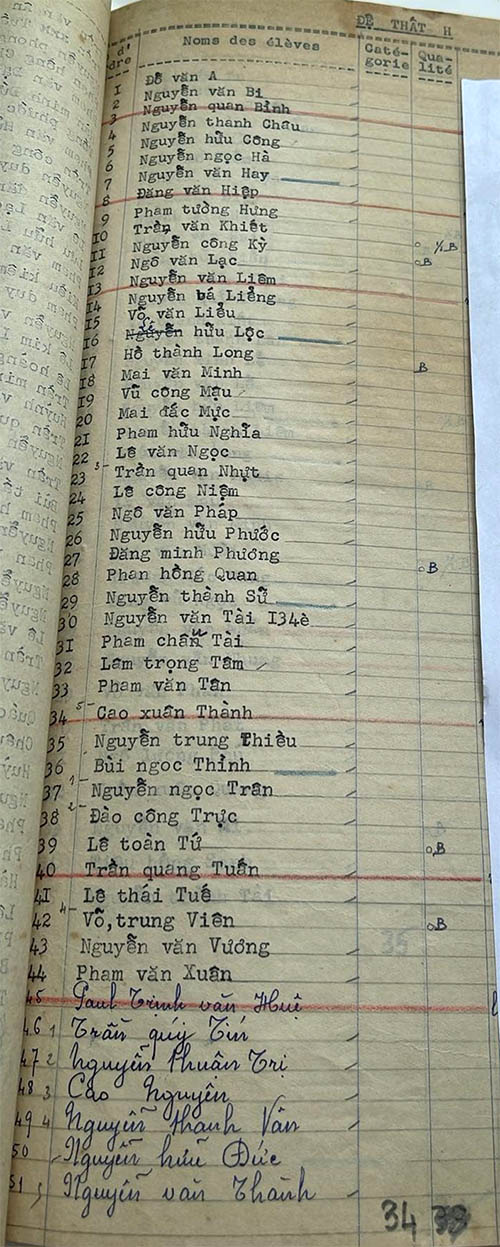 ĐỆ THẤT H
d'
dre
Noms des élèves
Caté-
gorie
Qua-
lité
1 Đỗ văn A
2 Nguyễn văn Bi
3 Nguyễn quan Bỉnh
4 Nguyễn thanh Châu
5 Nguyễn hữu Công
6 Nguyễn ngọc Hà
7 Nguyễn văn Hay
8 Đặng văn Hiệp
9 Phạm tường Hưng
10 Trần văn Khiết
11 Nguyễn công Kỷ ½B
12 Ngô văn Lạc B
13 Nguyễn văn Liêm
14 Nguyễn bá Liểng
15 Võ văn Liểu
16 hữu Lộc
17 Hồ thành Long
18 Mai văn Minh B
19 Vũ công Mậu
20 Mai đắc Mực
21 Phạm hữu Nghĩa
22 Lê văn Ngọc
23 3- Trần quan Nhựt
24 Lê công Niệm
25 Ngô văn Pháp
26 Nguyễn hữu Phước
27 Đặng minh Phương
28 Phan hồng Quan B
29 Nguyễn thành Sử
30 Nguyễn văn Tài I34è
31 Phạm chấn Tài
32 Lâm trọng Tâm
33 Phạm văn Tân
34 5- Cao xuân Thành
35 Nguyễn trung Thiều
36 Bùi ngọc Thỉnh
37 1- Nguyễn ngọc Trân
38 2- Đào công Trực
39 Lê toàn Tứ B
40 Trần quang Tuấn
41 Lê thái Tuế
42 4- Võ,trung Viên B
43 Nguyễn văn Vương
44 Phạm văn Xuân
45 Paul Trinh văn Huệ
46 1 Trần quý Tín
47 2 Nguyễn thuận Trị
48 3 Cao Nguyên
49 4 Nguyễn thanh Vân
50 Nguyễn hữu Đức
51 5 Nguyễn văn Thành
34